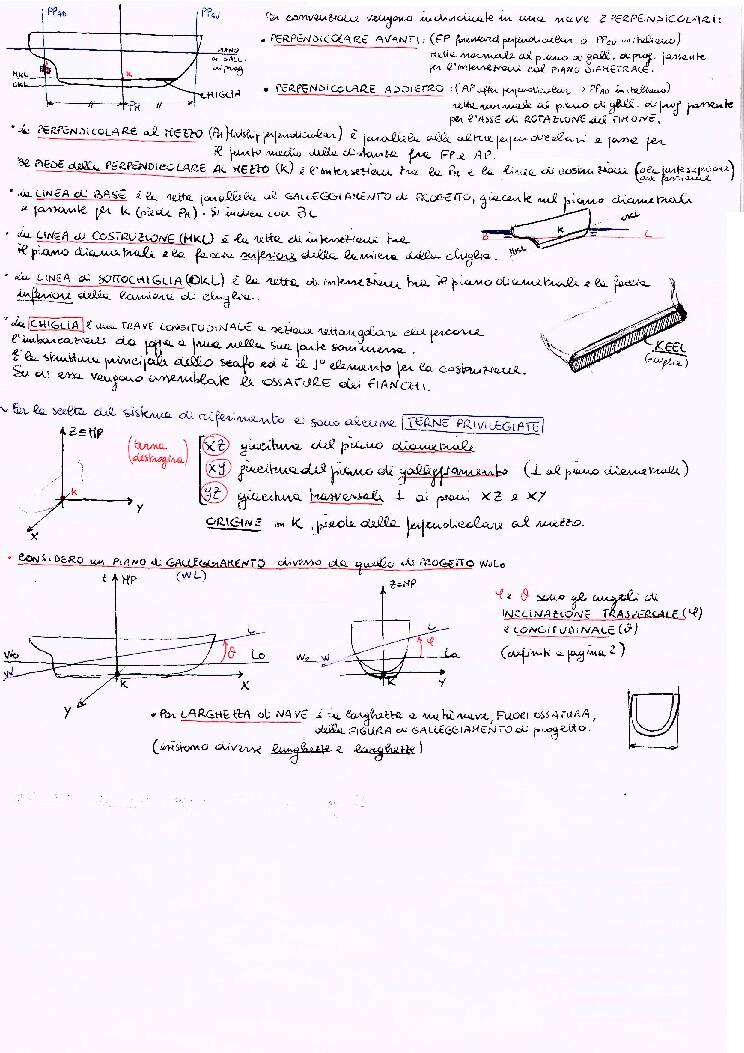 PPAD
PPAV
Per convenzione vengono individuate in una nave 2 PERPENDICOLARI:
• PERPENDICOLARE AVANTI: (FP forward perpendicular o PPAV in italiano)
retta normale al piano di gall. di prog. passante
per l'intersezione col PIANO DIAMETRALE.
PIANO
DI GALL.
di prog
MKL
OKL
K
CHIGLIA
PM
• PERPENDICOLARE ADDIETRO: (AP after perpendicular o PPAD in italiano)
retta normale al piano di gall. di prog passante
per l'ASSE di ROTAZIONE del TIMONE.
• la PERPENDICOLARE al MEZZO (PM Midship perpendicular) è parallela alle altre perpendicolari e passa per
il punto medio della distanza fra FP e AP.
Il PIEDE della PERPENDICOLARE AL MEZZO (K) è l'intersezione tra la PM e la linea di costruzione
• la LINEA di BASE è la retta parallela al GALLEGGIAMENTO di PROGETTO, giacente sul piano diametrale
e passante per K (piede PM). Si indica con BL
B
K
L
MKL
• la LINEA di COSTRUZIONE (MKL) è la retta di intersezione tra
il piano diametrale e la faccia superiore della lamiera della chiglia.
• la LINEA di SOTTOCHIGLIA (OKL) è la retta di intersezione tra il piano diametrale e la faccia
inferiore della lamiera di chiglia.
• La CHIGLIA è una TRAVE LONGITUDINALE a sezione rettangolare che percorre
l'imbarcazione da poppa a prua nella sua parte sommersa.
È la struttura principale dello scafo ed è il 1° elemento per la costruzione.
Su di essa vengono assemblate le OSSATURE dei FIANCHI.
KEEL
(chiglia)
~ Per la scelta del sistema di riferimento ci sono alcune TERNE PRIVILEGIATE
Z≡MP
K
Y
X
(terna
destrogira)
XZ giacitura del piano diametrale
XY giacitura del piano di galleggiamento (⊥ al piano diametrale)
YZ giacitura trasversale ⊥ ai piani XZ e XY
ORIGINE in K, piede della perpendicolare al mezzo.
• CONSIDERO un PIANO di GALLEGGIAMENTO diverso da quello di PROGETTO W0L0
(WL)
Z MP
L
W0
W
ϑ
L0
K
X
Y
Z≡MP
L
φ
W0
W
L0
K
Y
φ e ϑ sono gli angoli di
INCLINAZIONE TRASVERSALE (φ)
e LONGITUDINALE (ϑ)
(definiti a pagina 2)
• Per LARGHEZZA di NAVE è la larghezza a metà nave, FUORI OSSATURA,
della FIGURA di GALLEGGIAMENTO di progetto.
(esistono diverse lunghezze e larghezze)